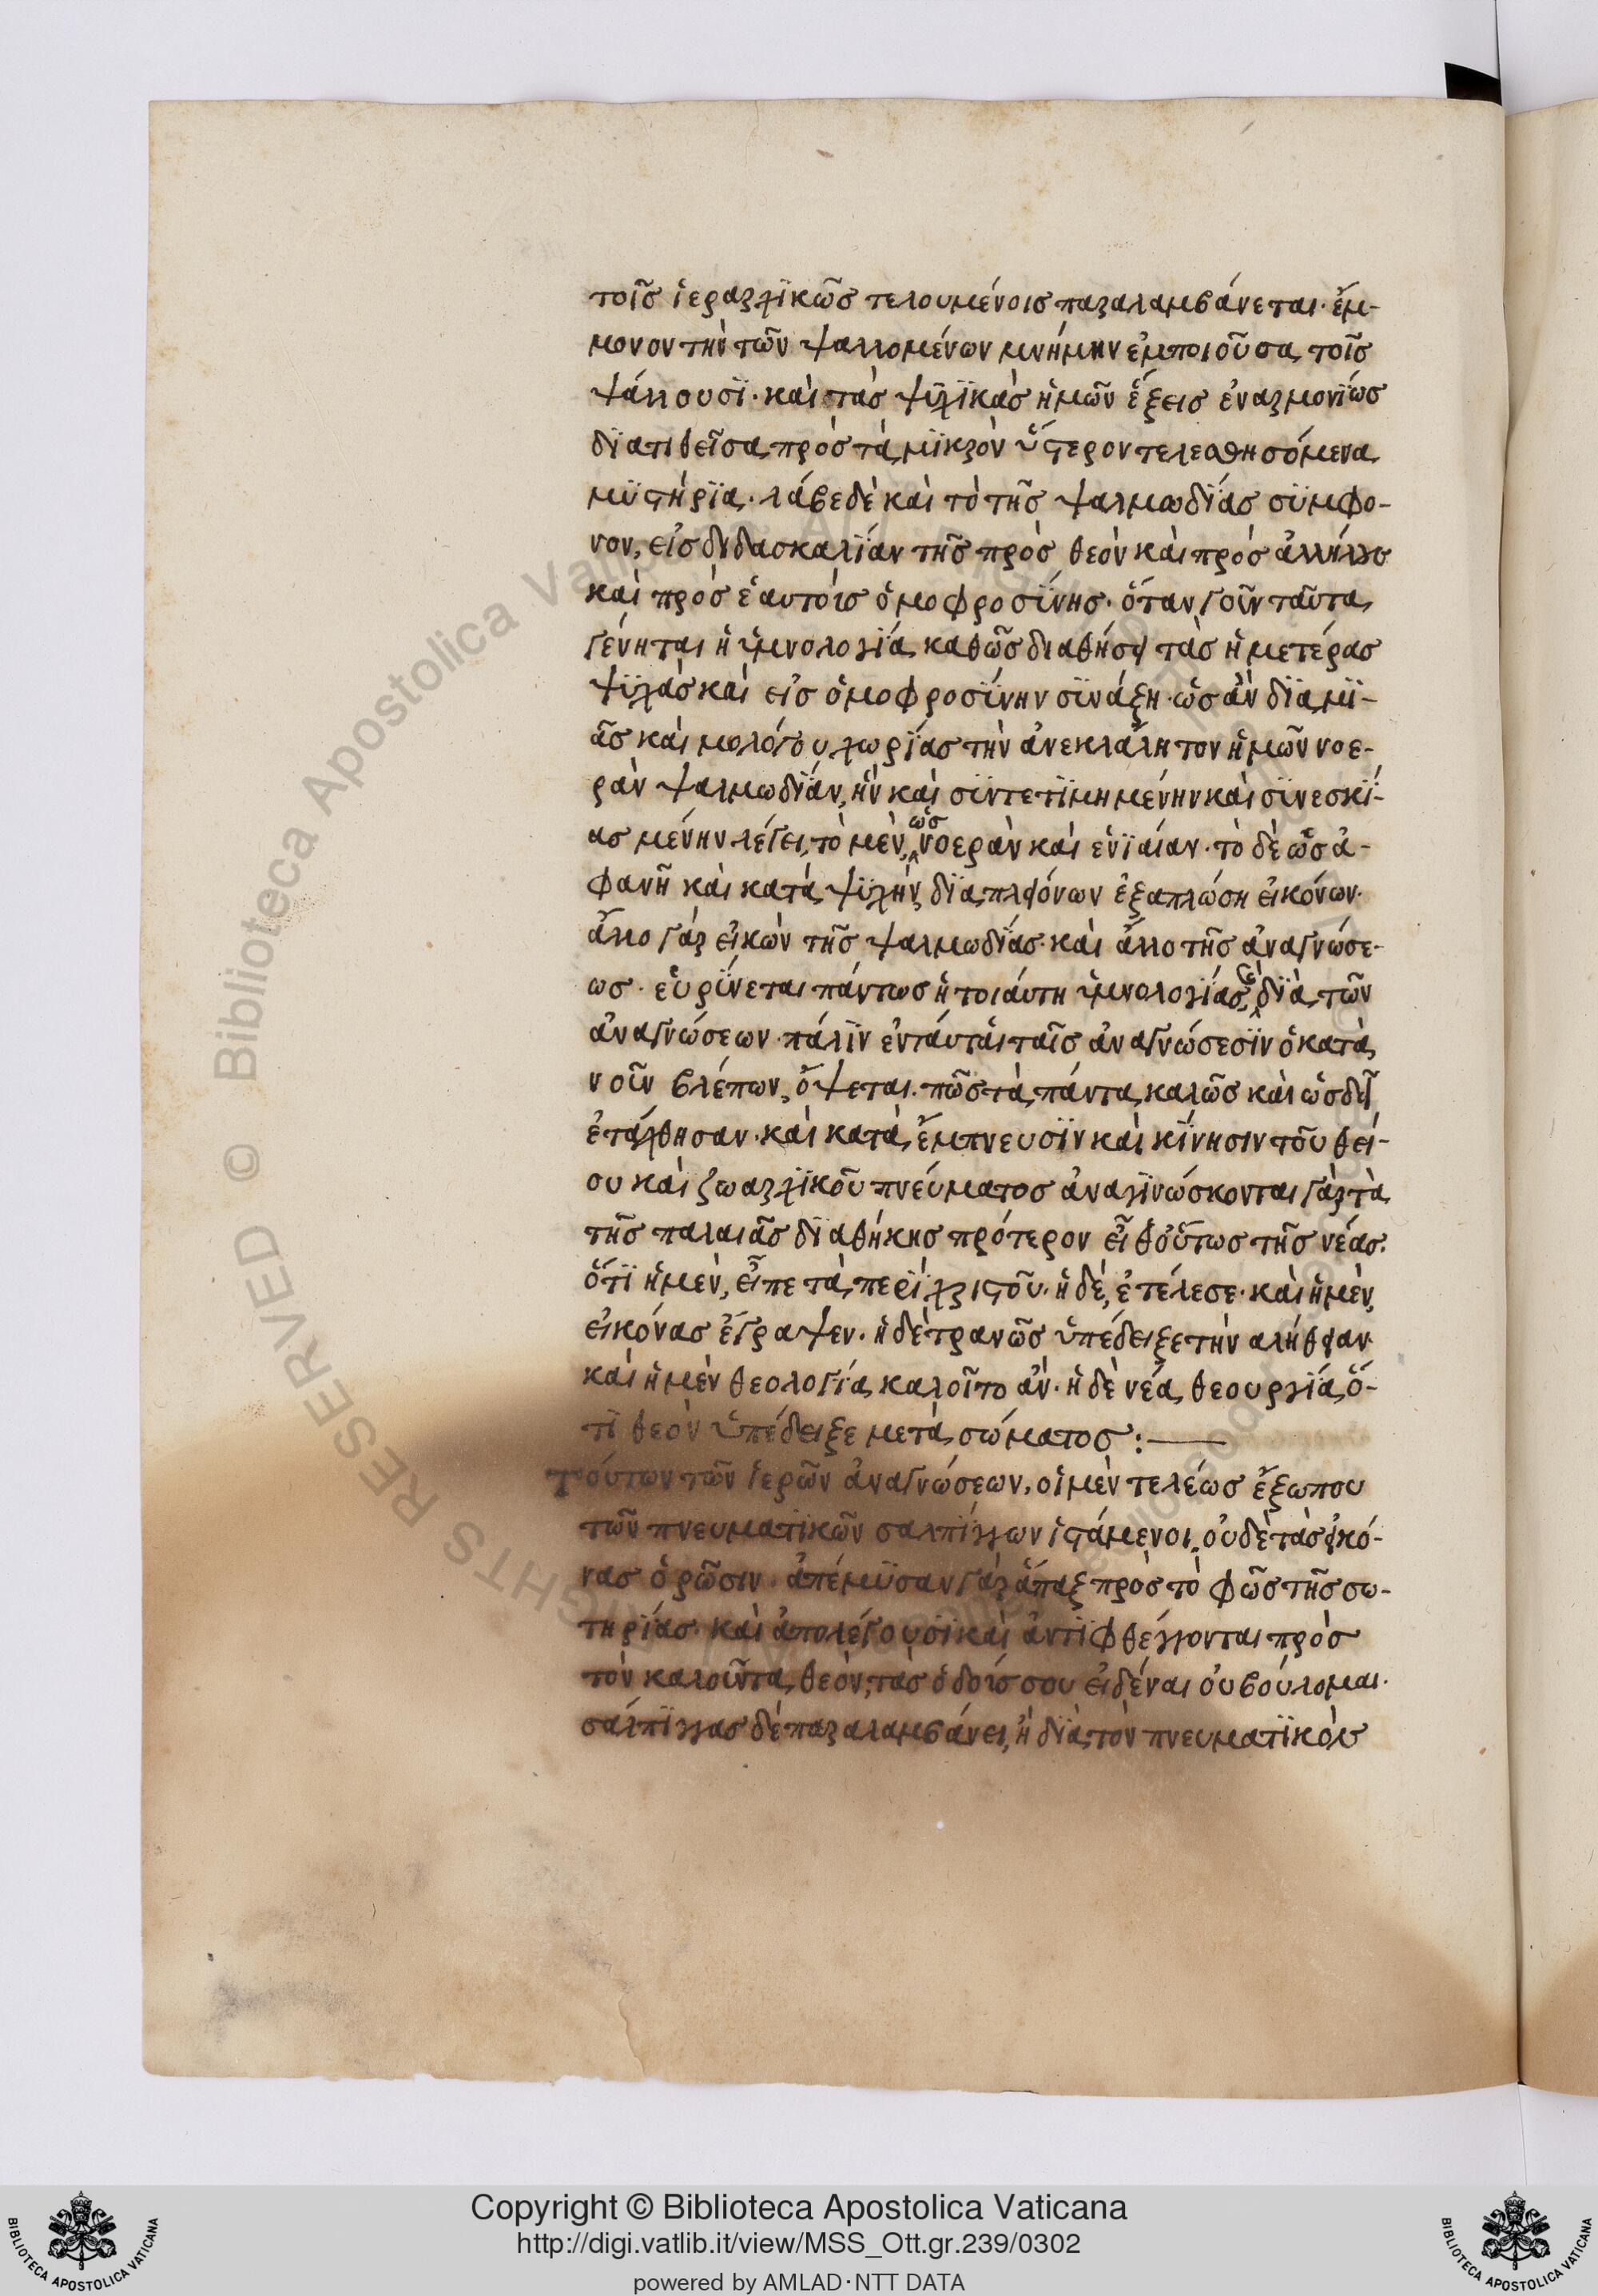 τοῖσ ἱεραρχϊκῶσ τελουμένοισ παραλαμβάνεται· ἔμ-
μονον τὴν τῶν ψαλλομένων μνήμην ἐμποιοῦσα τοῖσ
ψάλλουσϊ· καὶ τὰσ ψϋχϊκὰσ ἡμῶν ἕξεισ ἐναρμονΐωσ
δϊατιθεῖσα πρὸσ τὰ μϊκρὸν ὕστερον τελεσθησόμενα
μϋστήρϊα· λάβε δὲ καὶ τὸ τῆσ ψαλμωδΐασ σϋμφο-
νον, εἰσ διδασκαλΐαν τῆσ πρὸσ θεὸν καὶ πρὸσ ἀλλήλουσ
καὶ πρὸσ ἑαυτοὺσ ὁμοφροσΰνησ· ὅταν γοῦν ταῦτα
γένηται ἡ ὑμνολογία καθῶσ διαθήσει τὰσ ἡμετέρασ
ψϋχὰσ καὶ εἰσ ὁμοφροσΰνην σϋνάξη· ὡσ ἂν δϊα μϊ-
ᾶσ καὶ μολόγου χωρΐασ τὴν ἀνεκλάλητον ἡμῶν νοε-
ρὰν ψαλμωδΐαν, ἣν καὶ σϋντετϊμημένην καὶ σϋνεσκϊ-
ασμένην λέγει, τὸ μὲν, ὡσ νοερὰν καὶ ἑνϊαίαν· τὸ δὲ ὧσ ἀ-
φανῆ καὶ κατὰ ψϋχὴν, δϊα πλειόνων ἐξαπλώση εἰκόνων·
ἄλλο γὰρ εἰκὼν τῆσ ψαλμωδΐασ· καὶ ἄλλο τῆσ ἀναγνώσε-
ωσ· εὑρΰνεται πάντωσ ἡ τοιάυτη ὑμνολογίασ, δϊὰ τῶν
ἀναγνώσεων· πάλϊν ἐνταύταὶ ταῖσ ἀναγνώσεσϊν ὁ κατὰ
νοῦν βλέπων, ὄψεται· πῶσ τὰ πάντα καλῶσ καὶ ὡσ δεῖ
ἐτάχθησαν· καὶ κατὰ ἔμπνευσϊν καὶ κΐνησιν τοῦ θεί-
ου καὶ ζωαρχϊκοῦ πνεύματοσ ἀναγϊνώσκονται γὰρ τὰ
τῆσ παλαιᾶσ δϊαθήκησ πρότερον εἶθ οὕτωσ τῆσ νέασ·
ὅτϊ ἡ μὲν, εἶπε τὰ περὶ χριστοῦ· ἡ δὲ, ἐτέλεσε· καὶ ἡ μὲν,
εἰκόνασ ἔγραψεν· ἡ δὲ τρανῶσ ὑπέδειξε τὴν αλήθειαν·
καὶ ἡ μὲν θεολογΐα καλοῖτο ἂν· ἡ δὲ νέα, θεουργία, ὅ-
τϊ θεὸν ὑπέδειξε μετὰ σώματοσ :—
Τούτων τῶν ἱερῶν ἀναγνώσεων, οἱ μὲν τελέωσ ἔξωπου
τῶν πνευματϊκῶν σαλπΐγγων ἱστάμενοι, οὐδὲ τὰσ εἰκό-
νασ ὁρῶσιν· ἀπέμϋσαν γὰρ ἅπαξ πρὸσ τὸ φῶσ τῆσ σω-
τηρΐασ· καὶ ἀπολέγουσϊ καὶ ἀντϊφθέγγονται πρὸσ
τὸν καλοῦντα θεόν, τὰσ ὁδούσ σου εἰδέναι οὐ βούλομαι·
σάλπϊγγασ δὲ παραλαμβάνει, ἢ δϊὰ τὸν πνευματϊκὸν
Copyright © Biblioteca Apostolica Vaticana
http://digi.vatlib.it/view/MSS_Ott.gr.239/0302
powered by AMLAD·NTT DATA